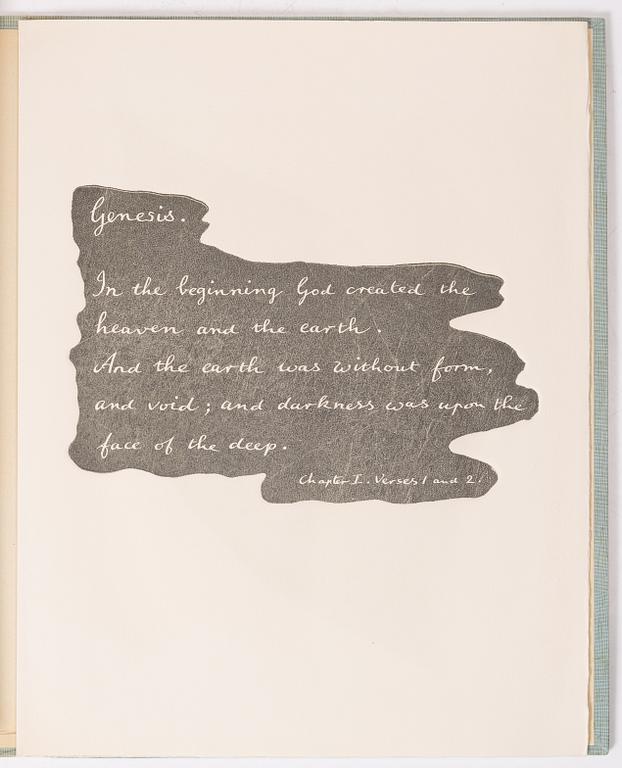 Genesis.
In the beginning God created the
heaven and the earth.
And the earth was without form,
and void; and darkness was upon the
face of the deep.
Chapter I. Verses 1 and 2.